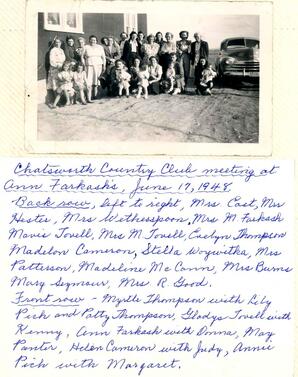 Chatsworth Country Club meeting at
Ann Farkash's, June 17, 1948.
Back row, left to right, Mrs Cast, Mrs
Hester, Mrs Witherspoon, Mrs M Farkash
Mavis Tovell, Mrs M Tovell, Evelyn Thompson
Madelon Cameron, Stella Woywitka, Mrs
Patterson, Madeline McCann, Mrs Burns
Mary Symour, Mrs R. Good.
Front row - Myrtle Thompson with Lily
Pich and Patty Thompson, Gladys Tovell with
Kenny, Ann Farkash with Donna, May
Panter, Helen Cameron with Judy, Annie
Pich with Margaret.